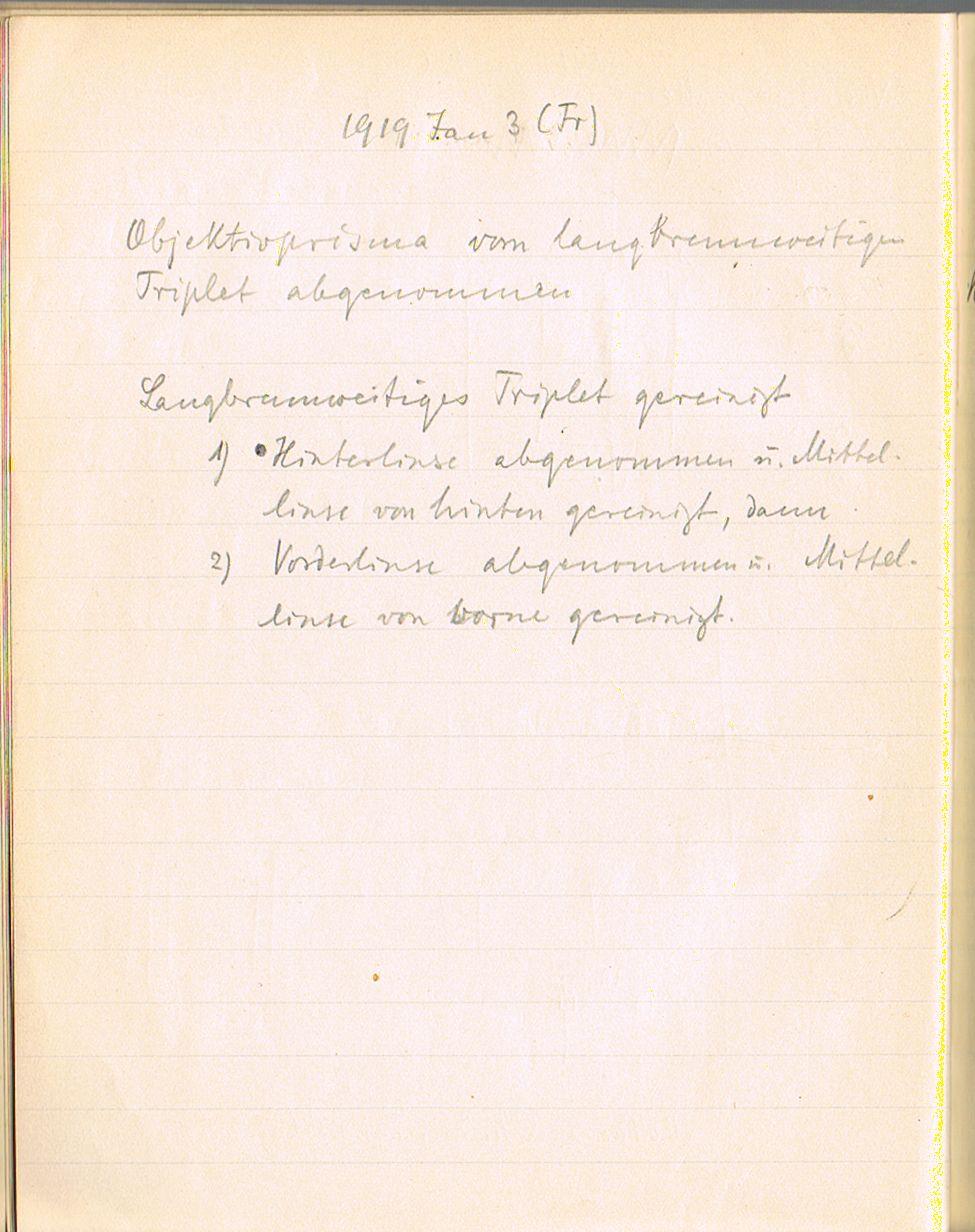 1919 Jan 3 (Fr)
Objektivprisma vom langbrennweitigen
Triplet abgenommen
Langbrennweitiges Triplet gereinigt
1) Hinterlinse abgenommen u. Mittel-
linse von hinten gereinigt, dann
2) Vorderlinse abgenommen u. Mittel-
linse von vorne gereinigt.